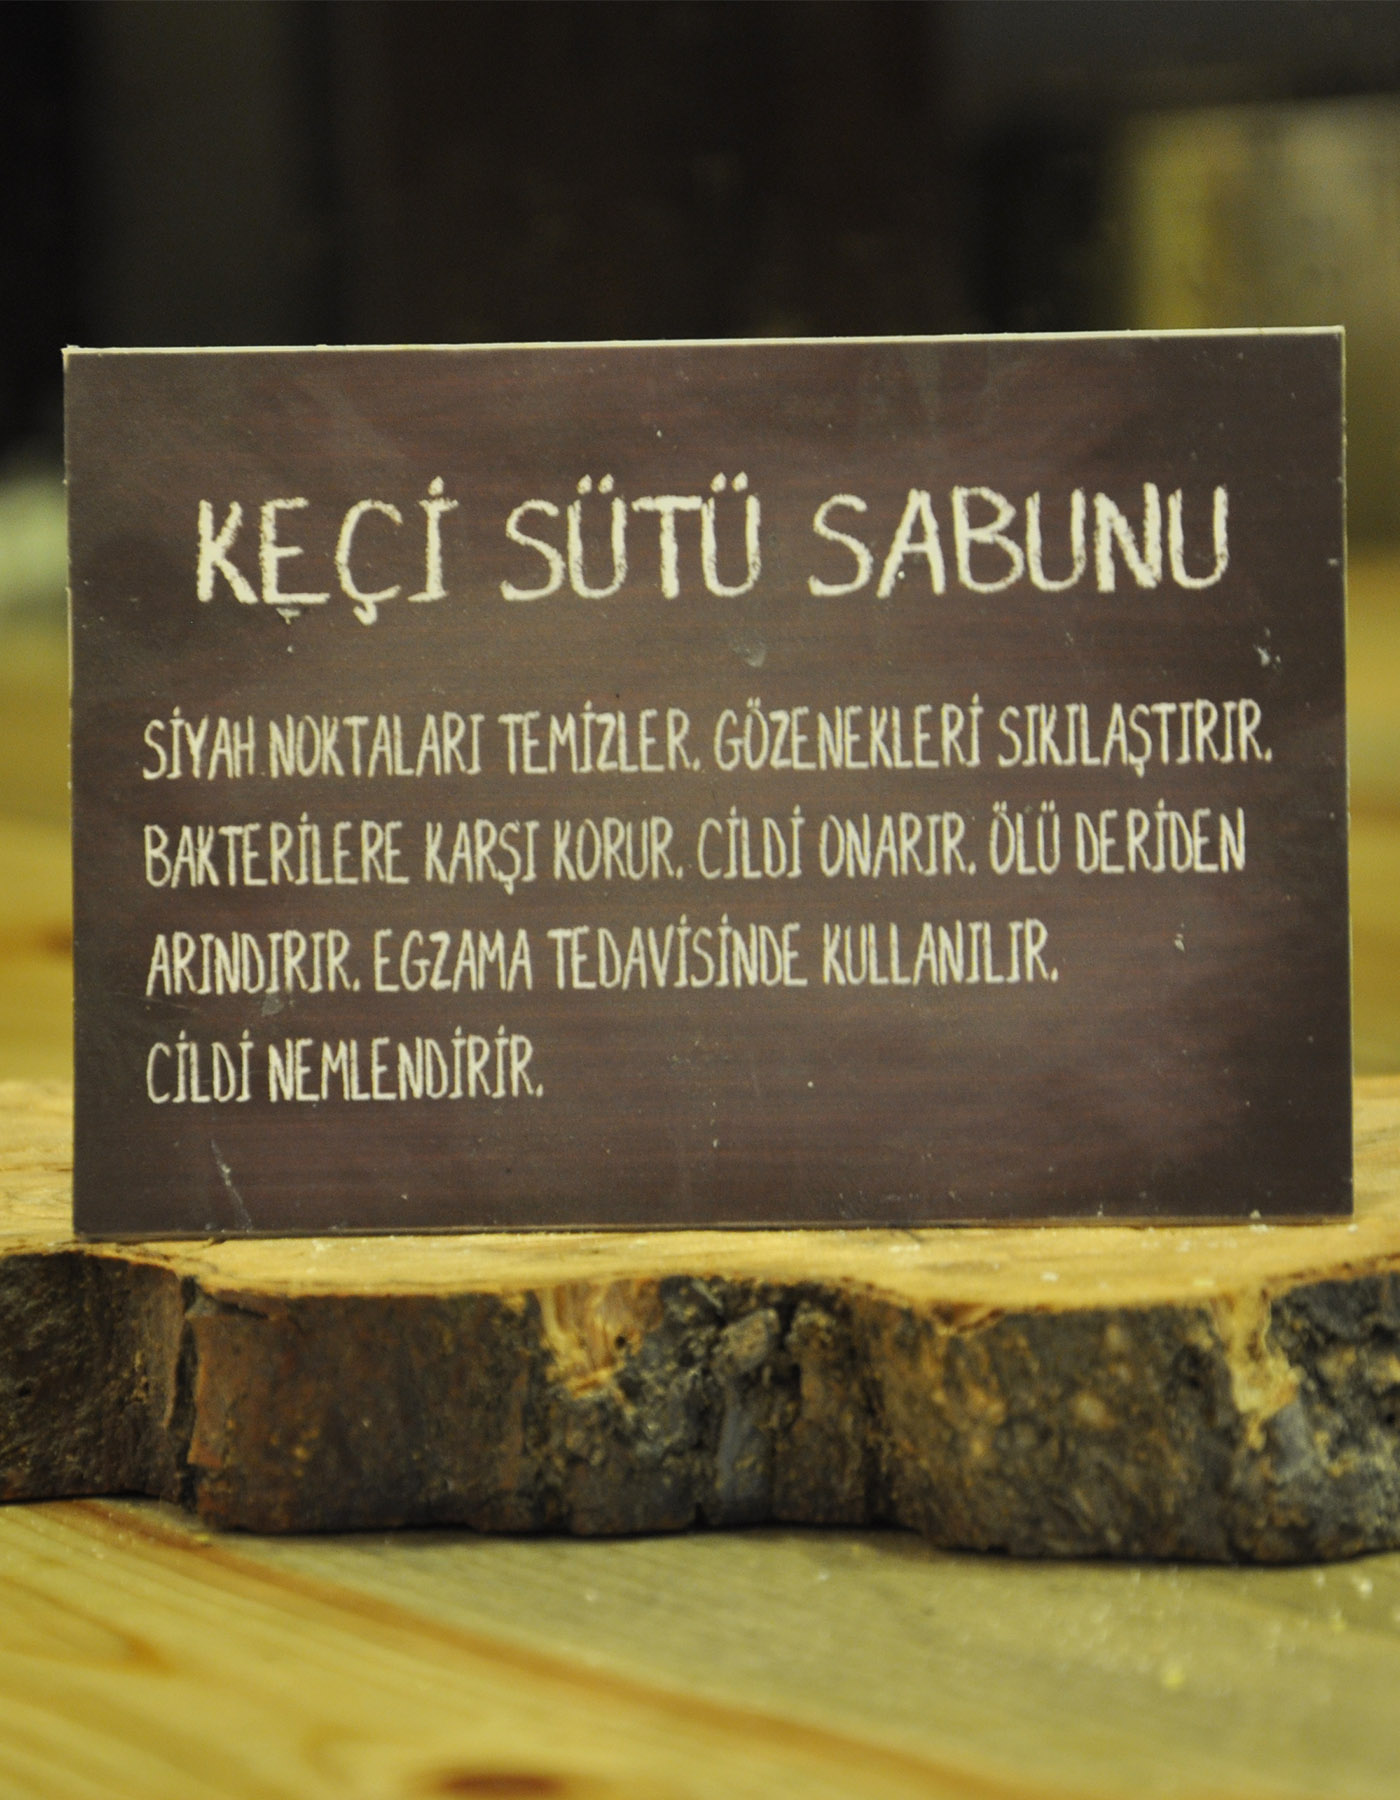 KEÇİ SÜTÜ SABUNU
SİYAH NOKTALARI TEMİZLER. GÖZENEKLERİ SIKILAŞTIRIR.
BAKTERİLERE KARŞI KORUR. CİLDİ ONARIR. ÖLÜ DERİDEN
ARINDIRIR. EGZAMA TEDAVİSİNDE KULLANILIR.
CİLDİ NEMLENDİRİR.